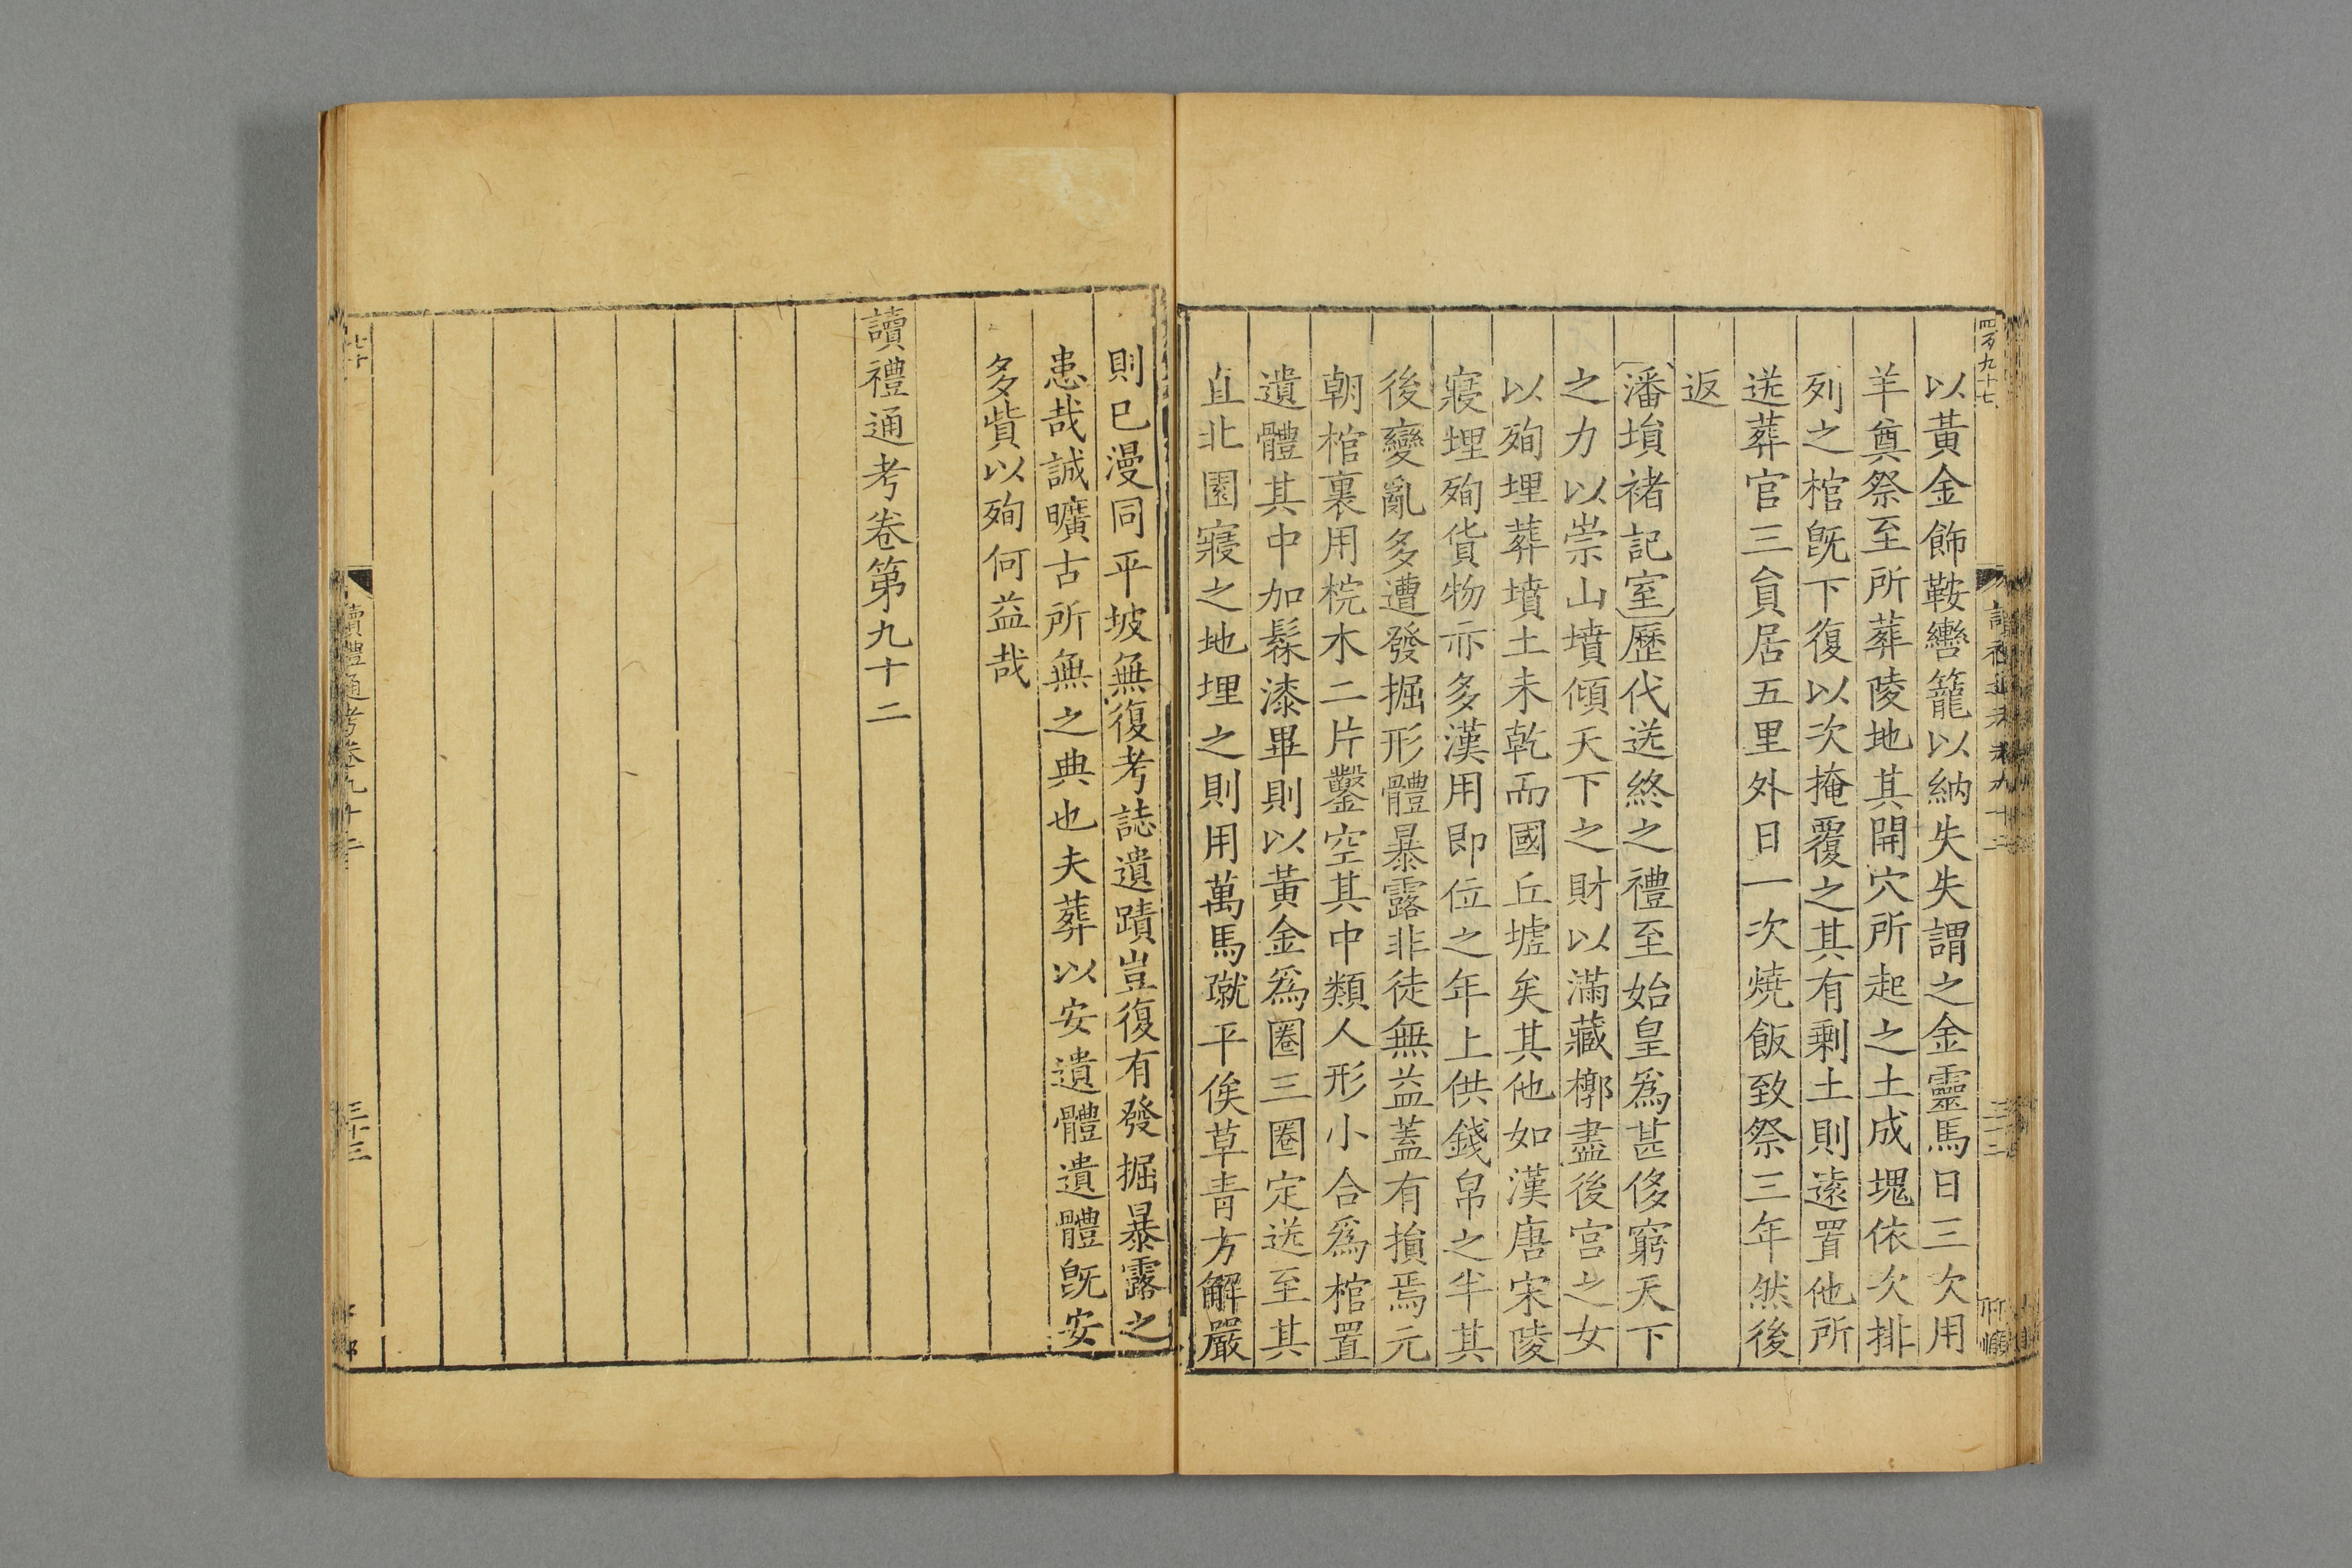 四百九十七
以黃金飾鞍轡籠以納失失謂之金靈馬日三次用
羊奠祭至所葬陵地其開穴所起之土成塊依次排
列之棺旣下復以次掩覆之其有剩土則遠置他所
送葬官三員居五里外日一次燒飯致祭三年然後
返
潘塤褚記室歷代送終之禮至始皇爲甚侈窮天下
之力以崇山墳傾天下之財以滿藏槨盡後宮之女
以殉埋葬墳土未乾而國丘墟矣其他如漢唐宋陵
寢埋殉貨物亦多漢用即位之年上供錢帛之半其
後變亂多遭發掘形體暴露非徒無益蓋有損焉元
朝棺裏用梡木二片鑿空其中類人形小合爲棺置
遺體其中加髹漆畢則以黃金爲圈三圈定送至其
直北園寢之地埋之則用萬馬蹴平俟草青方解嚴
則已漫同平坡無復考誌遺蹟豈復有發掘暴露之
患哉誠曠古所無之典也夫葬以安遺體遺體旣安
多貲以殉何益哉
讀禮通考卷第九十二
讀禮通考卷九十二
三十三